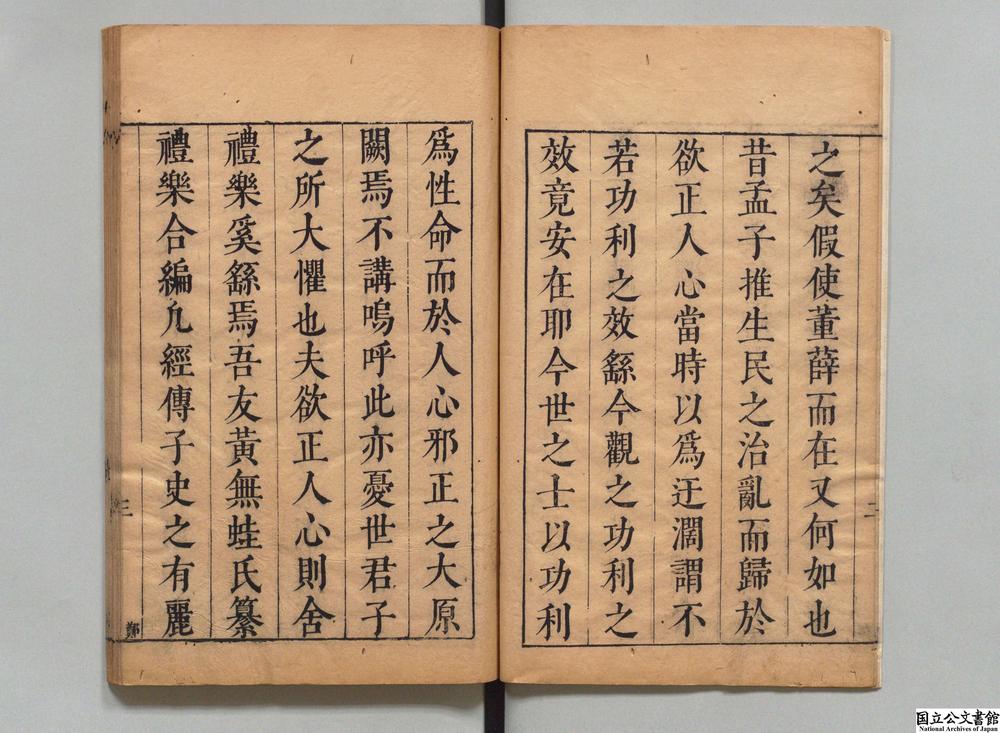 之矣假使董薛而在又何如也
昔孟子推生民之治亂而歸於
欲正人心當時以爲迂濶謂不
若功利之效繇今觀之功利之
效竟安在耶今世之士以功利
二
爲性命而於人心邪正之大原
闕焉不講嗚呼此亦憂世君子
之所大懼也夫欲正人心則舍
禮樂奚繇焉吾友黃無蛙氏纂
禮樂合編凡經傳子史之有麗
三
鄭
国立公文書館
National Archives of Japan